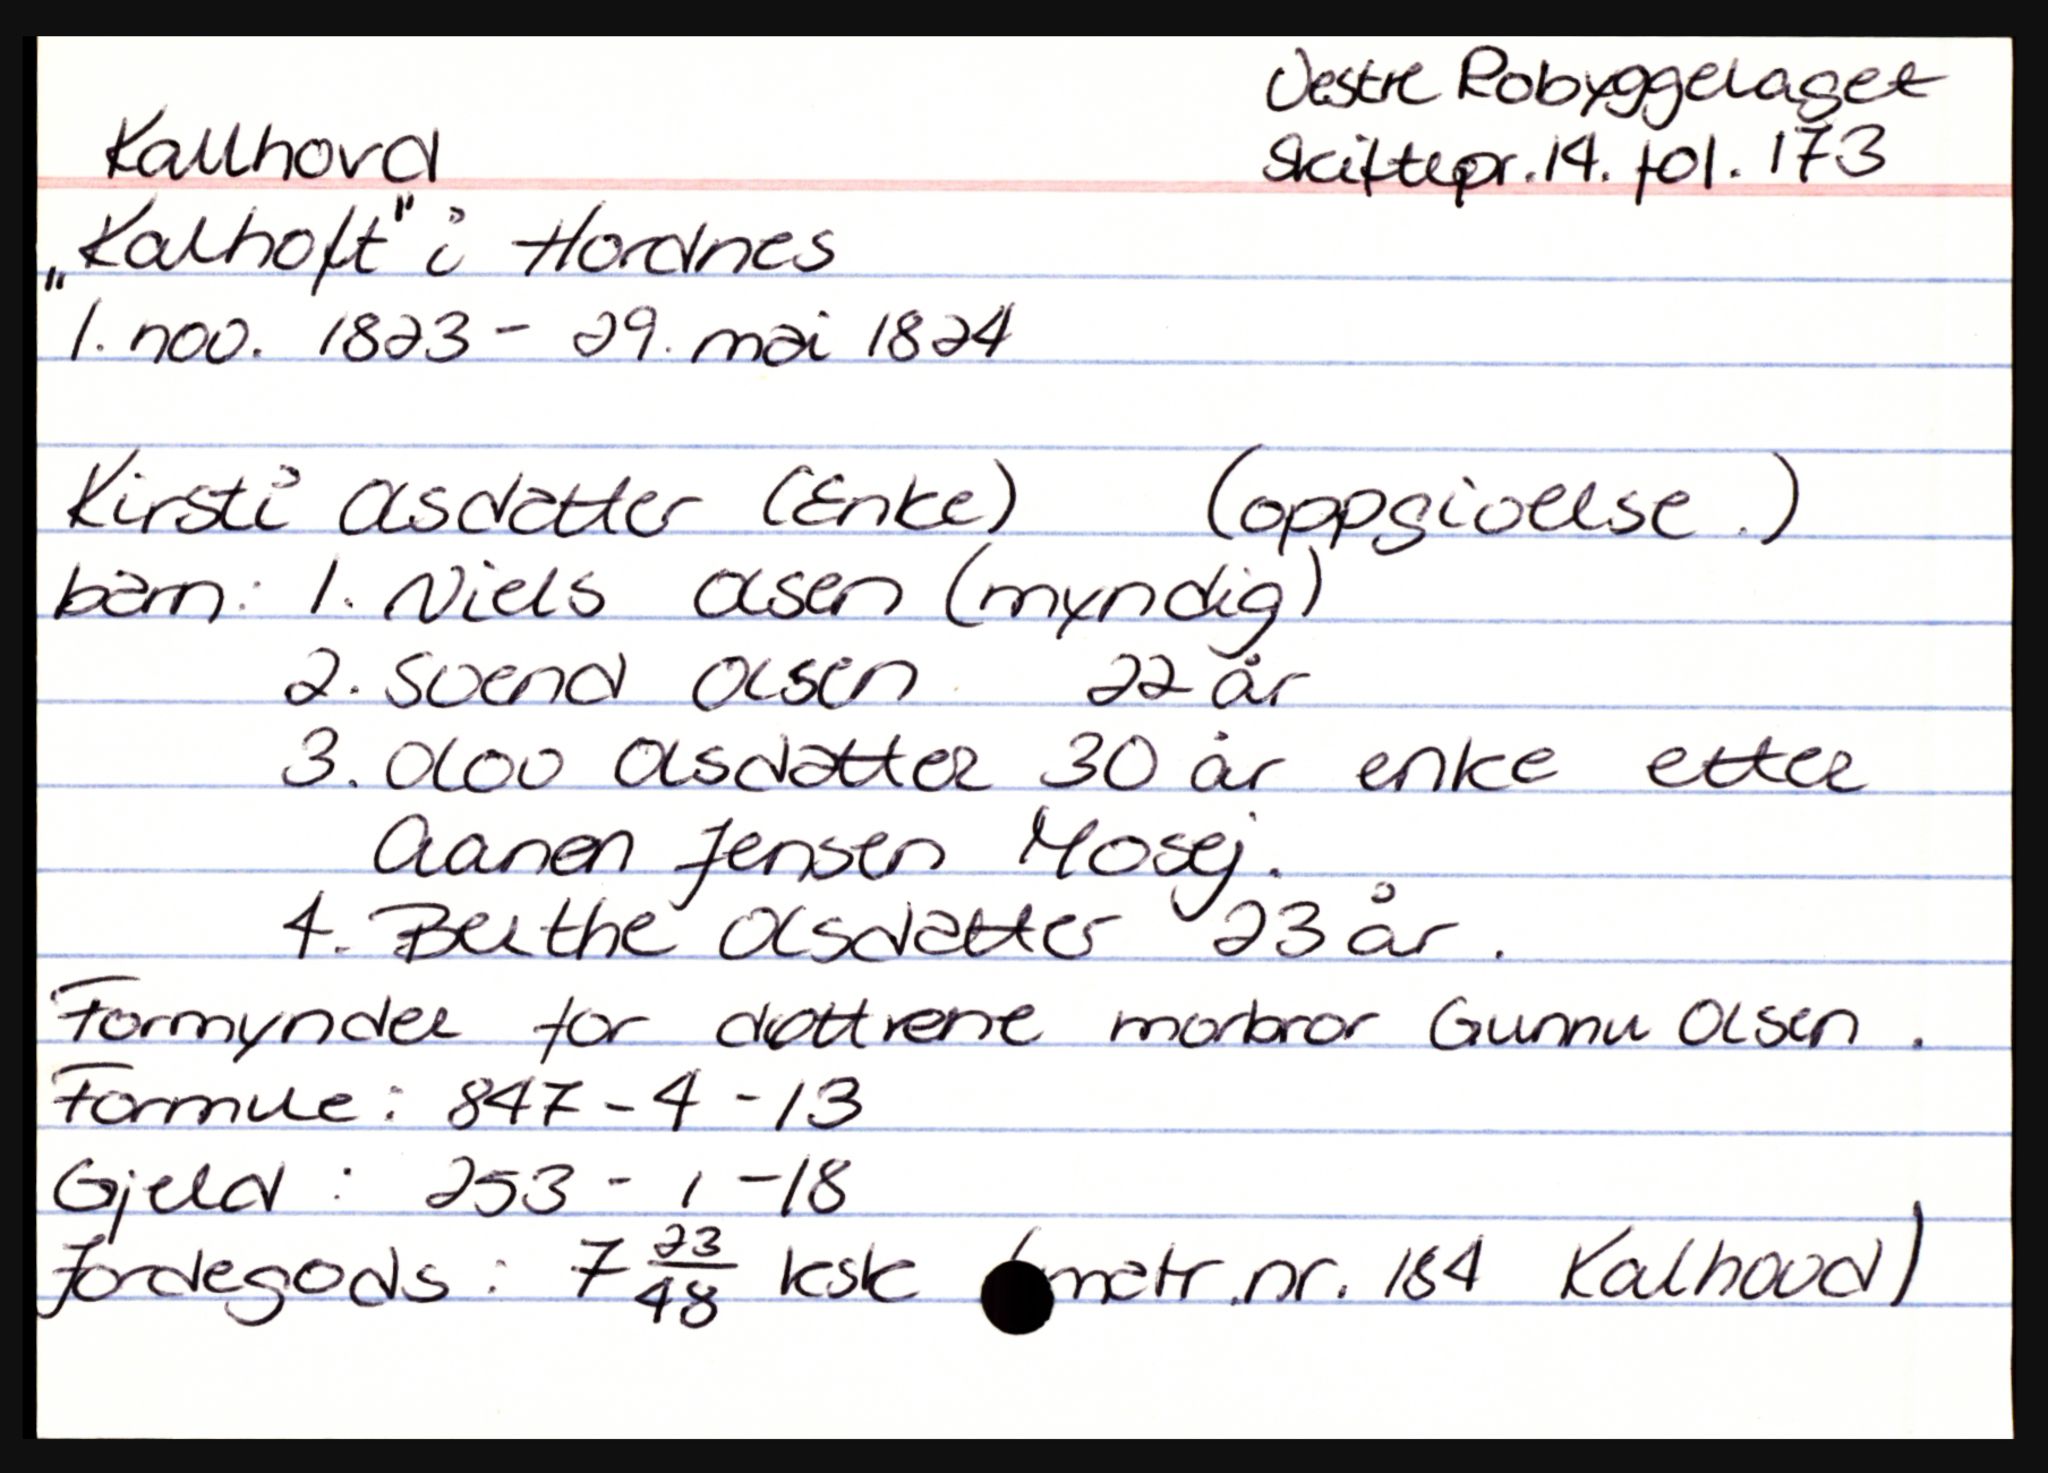 Vestre Robyggelaget
Kallhovd
Skiftepr. 14. fol. 173
„Kalhoft" i Hordnes
1. nov. 1823 - 29. mai 1824
Kirsti Olsdatter (Enke) (oppgivelse.)
barn: 1. Niels Olsen (myndig)
2. Svend Olsen 22 år
3. Olov Olsdatter 30 år enke etter
Aanen Jensen Mosej.
4. Berthe Olsdatter 23 år.
Formynder for døttrene morbror Gunnu Olsen.
Formue: 847 - 4 - 13
Gjeld: 253 - 1 - 18
Jordegods: 7 23/48 ksk (matr.nr. 184 Kalhovd)